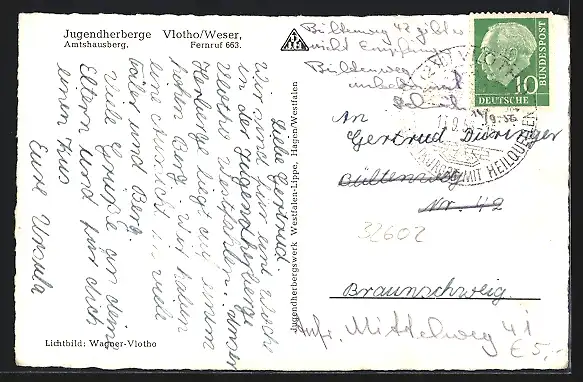 Jugendherberge Vlotho/Weser,
Amtshausberg. Fernruf 663.
Liebe Gertrud!
Wir sind für eine Woche
in der Jugendherberge
Vlotho Westfalen. Unser
Herberge liegt auf einem
hohen Berg. Wir haben
eine Aussicht in viele
Täler und Berg.
Viele Grüße an deine
Eltern und für dich
einen Kuss
Eure Ursula
Lichtbild: Wagner-Vlotho
Jugendherbergswerk Westfalen-Lippe, Hagen/Westfalen
Bültenweg 42 gibt es
nicht
Bültenweg
unbekannt
DEUTSCHE
BUNDESPOST
10
VLOTHO
MIT HEILQUELLEN
An
Gertrud Düringer
Bültenweg
Nr. 42
32602
Braunschweig
Mittelweg 41
€ 5,-